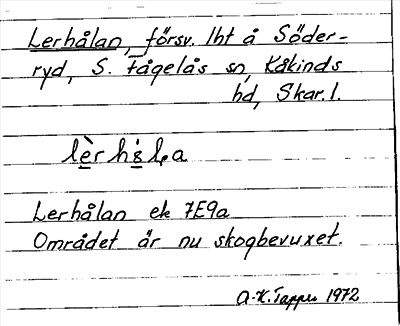 Lerhålan, försv. lht å Söder-
ryd, S. Fågelås sn, Kåkinds
hd, Skar. l.
Lerhålan ek 7E9a
Området är nu skogbevuxet.
A-K. Tapper 1972